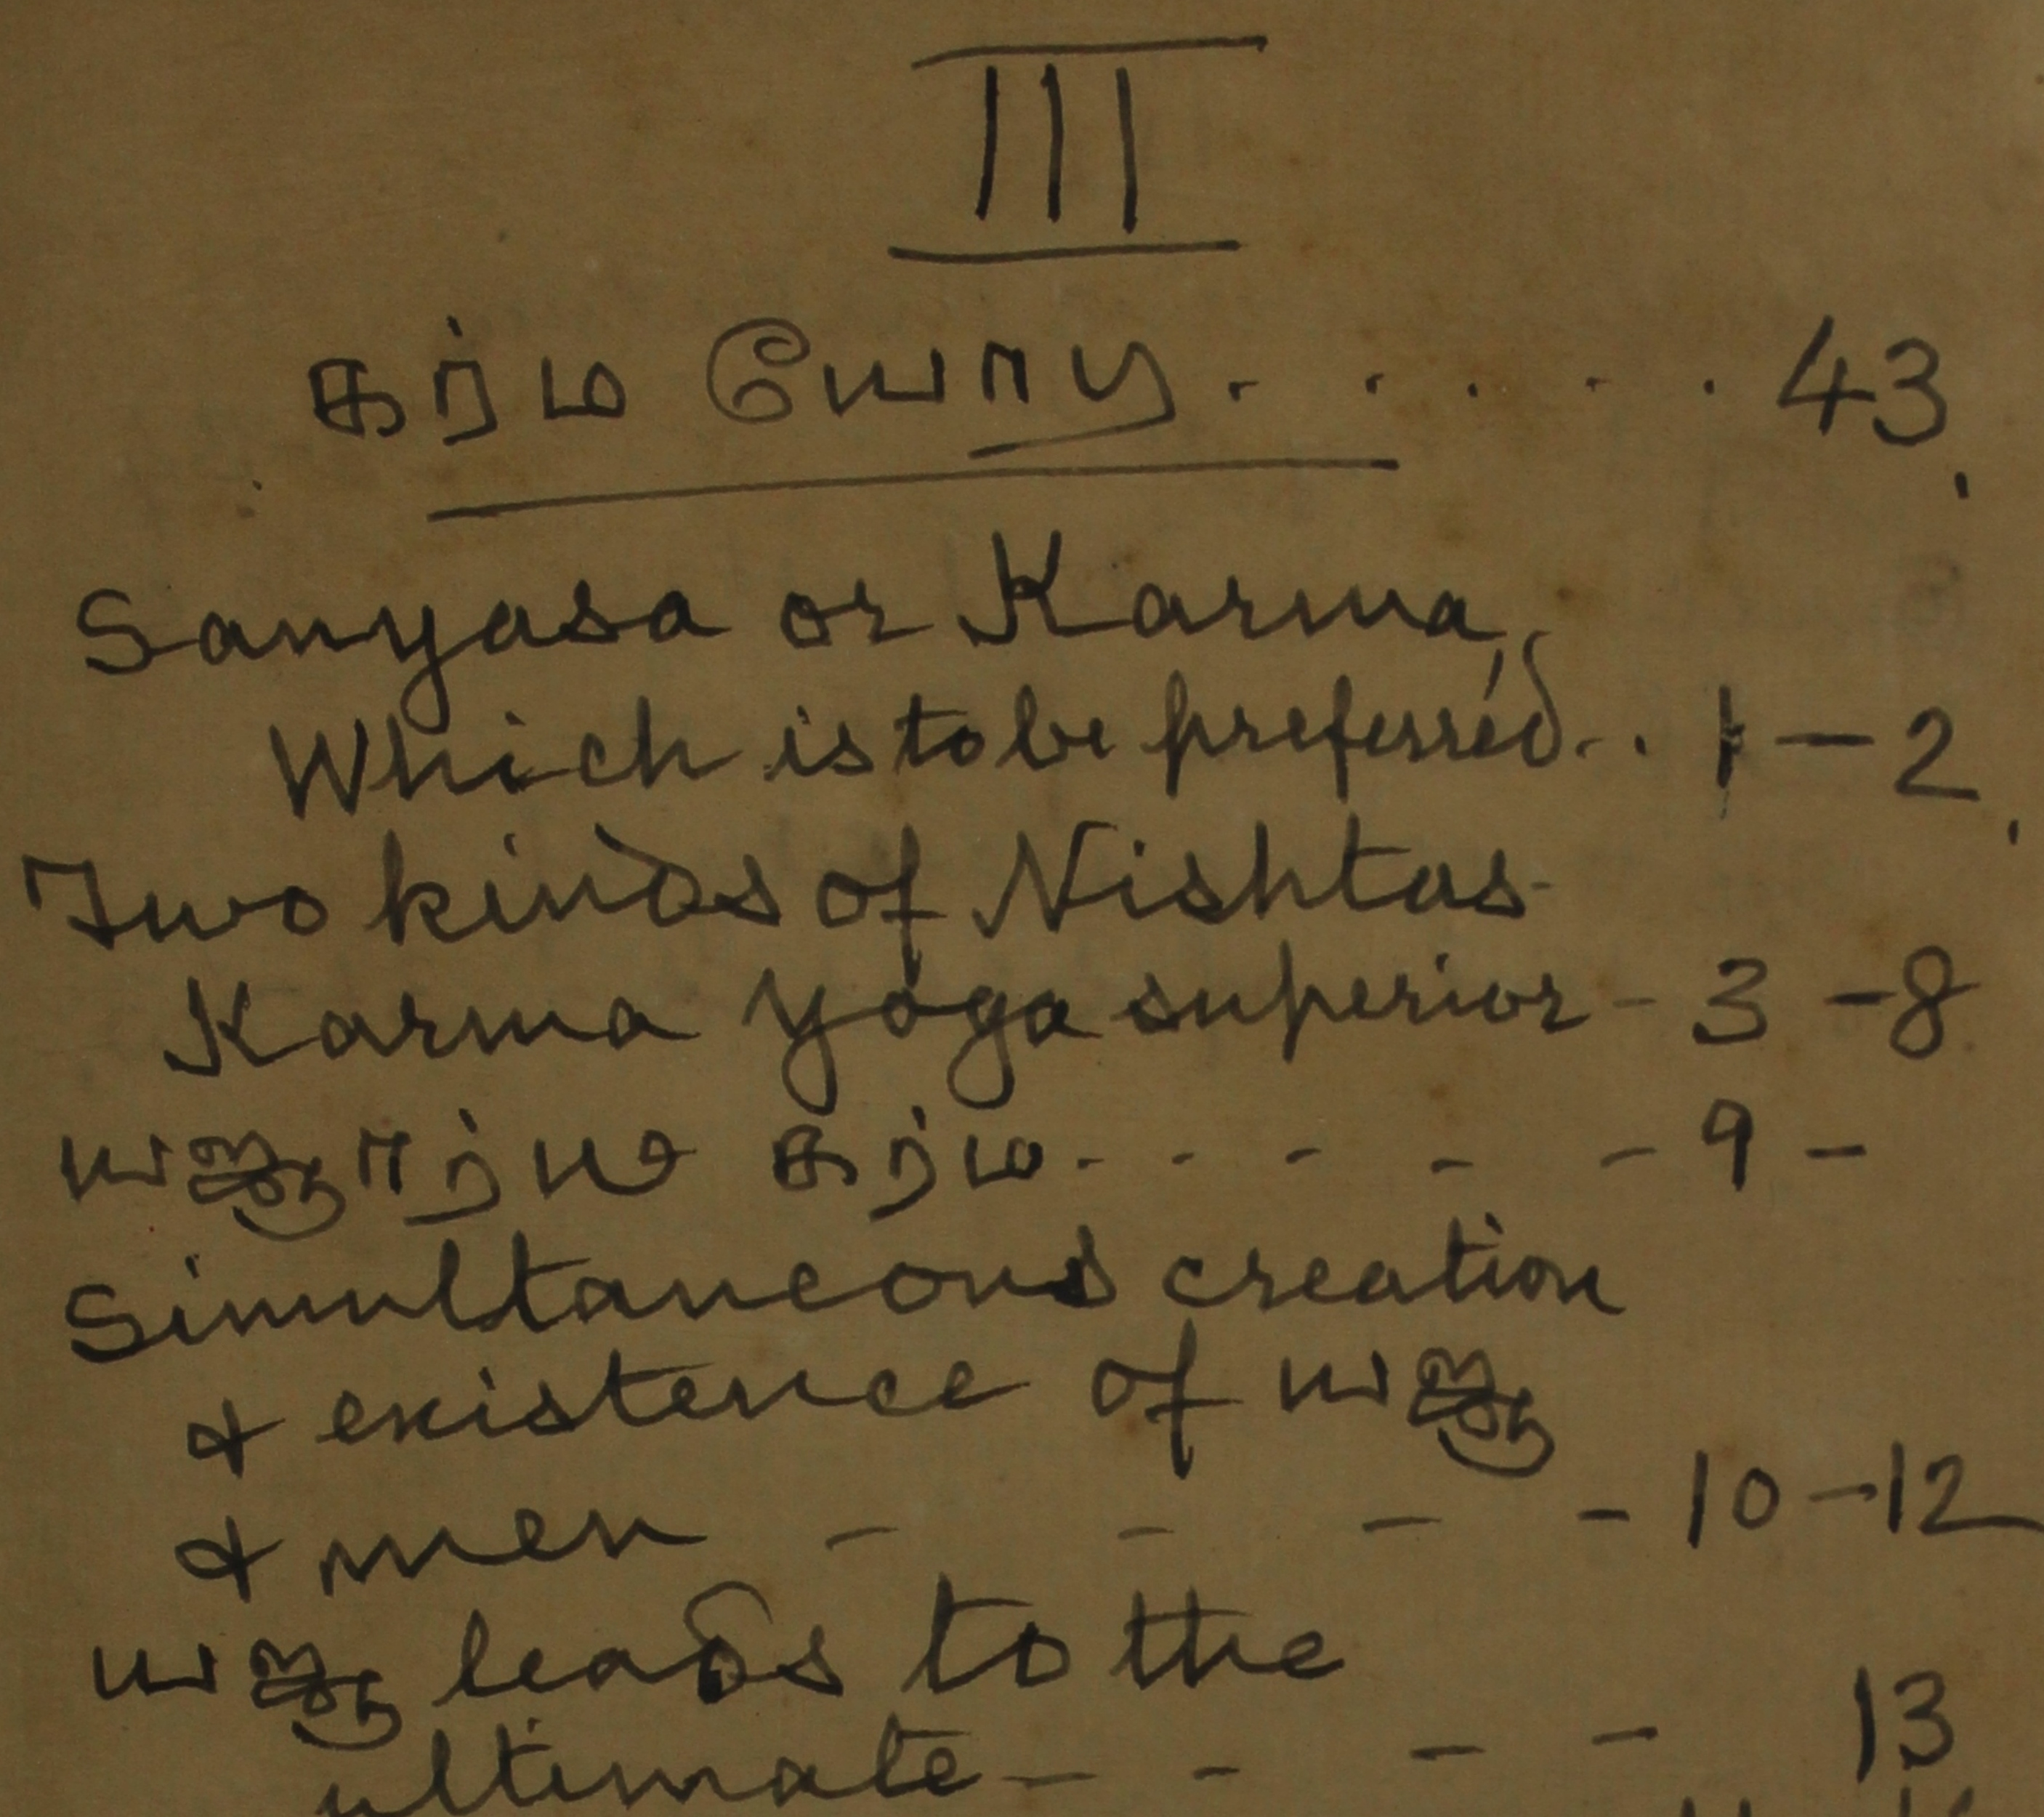 III
கர்ம யோக . . . . . 43
Sanyasa or Karma,
Which is to be preferred . . 1 — 2
Two kinds of Nishtas-
Karma yoga superior - 3 - 8
யஜ்ஞார்த கர்ம - - - - - 9 -
Simultaneous creation
& existence of யஜ்ஞ
& men - - - - 10 - 12
யஜ்ஞ leads to the
ultimate - - - - 13